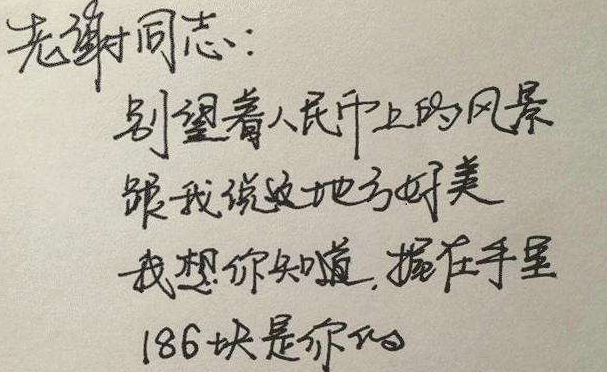 老谢同志:
别望着人民币上的风景
跟我说这地方好美
我想你知道,握在手里
186块是你的